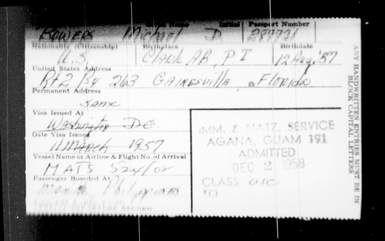 Name Initial Passport Number
BOWERS Michael D. 287721
Nationality (Citizenship) Birthplace Birthdate
U.S. Clark AB, P.I 12 Aug '57
United States Address
Rt 2 Bx 263 Gainesville, Florida
Permanent Address
same
Visa Issued At
Washington DC
Date Visa Issued
11 March 1957
Vessel Name or Airline & Flight No. of Arrival
MATS
Passenger Boarded At
Manila Philippines
IMM. & NATZ. SERVICE
AGANA, GUAM 191
ADMITTED
DEC 2 1958
CLASS
TO
ANY HANDWRITTEN ENTRIES MUST BE IN
BLOCK CAPITAL LETTERS